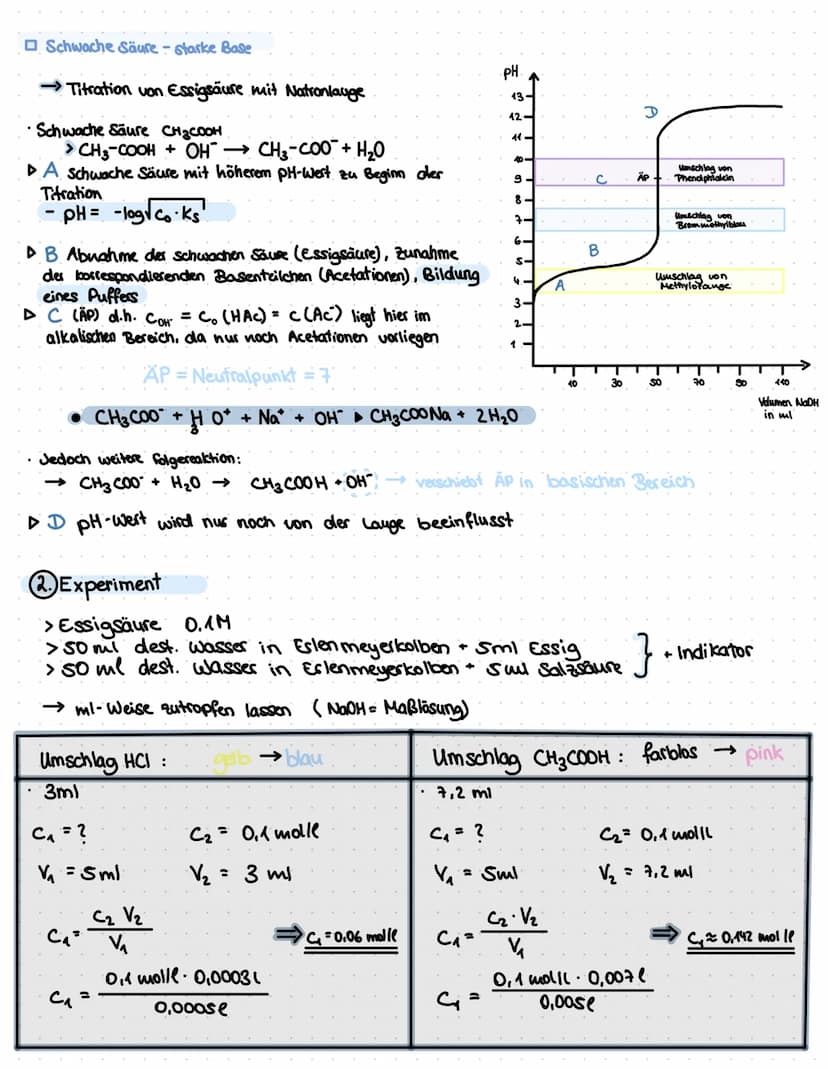 Schwache Säure - starke Base
→ Titration von Essigsäure mit Natronlauge
· Schwache Säure CH₃COOH
> CH₃-COOH + OH⁻ → CH₃-COO⁻ + H₂O
▷ A Schwache Säure mit höherem pH-Wert zu Beginn der
Titration
- pH = -log√c₀·Ks
▷ B Abnahme der schwachen Säure (Essigsäure), Zunahme
der korrespondierenden Basenteilchen (Acetationen), Bildung
eines Puffers
▷ C (ÄP) d.h. c_OH⁻ = c₀(HAc) = c(Ac⁻) liegt hier im
alkalischen Bereich, da nur noch Acetationen vorliegen
ÄP = Neutralpunkt = 7
• CH₃COO⁻ + H₃O⁺ + Na⁺ + OH⁻ ▸ CH₃COONa + 2H₂O
· Jedoch weitere Folgereaktion:
→ CH₃COO⁻ + H₂O → CH₃COOH + OH⁻ → verschiebt ÄP in basischen Bereich
▷ D pH-Wert wird nur noch von der Lauge beeinflusst
pH
13
12
11
10
9
8
7
6
5
4
3
2
1
D
C
ÄP
B
A
Umschlag von
Phenolphtalein
Umschlag von
Brommethylblau
Umschlag von
Methylorange
10
30
50
70
90
110
Volumen NaOH
in ml
2. Experiment
> Essigsäure 0.1M
> 50 ml dest. Wasser in Erlenmeyerkolben + 5ml Essig
> 50 ml dest. Wasser in Erlenmeyerkolben + 5ml Salzsäure
} + Indikator
→ ml-Weise zutropfen lassen (NaOH = Maßlösung)
Umschlag HCl : gelb → blau
· 3ml
C₁ = ? C₂ = 0,1 mol/l
V₁ = 5ml V₂ = 3 ml
C₁ = C₂ V₂ / V₁
⇒ C₁ = 0,06 mol/l
C₁ = 0,1 mol/l · 0,0003 l / 0,0005 l
Umschlag CH₃COOH : farblos → pink
· 7,2 ml
C₁ = ? C₂ = 0,1 mol/L
V₁ = 5ml V₂ = 7,2 ml
C₁ = C₂ · V₂ / V₁
⇒ C₁ ≈ 0,142 mol/l
C₁ = 0,1 mol/L · 0,007 l / 0,005 l